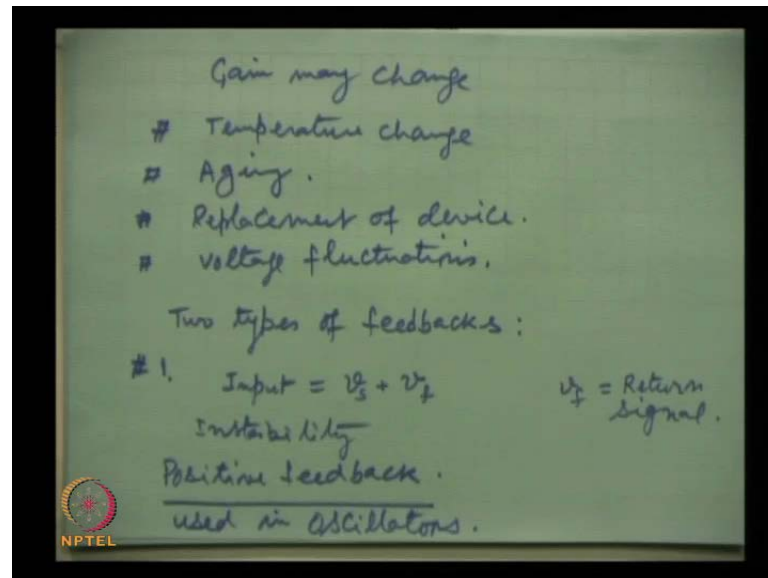 Gain may change
# Temperature change
# Aging.
# Replacement of device.
# voltage fluctuations.
Two types of feedbacks:
#1. Input = vs + vf    vf = Return signal.
Instability
Positive feedback.
used in oscillators.
NPTEL